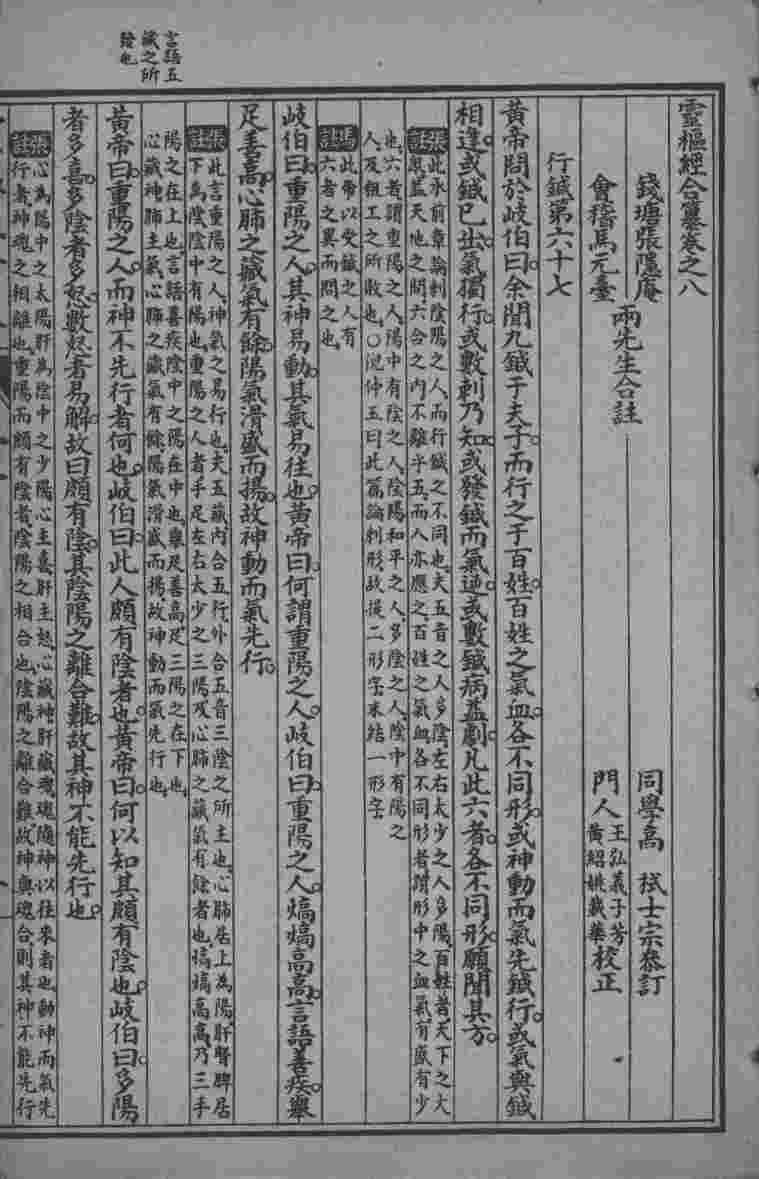 言語五
藏之所
發也
靈樞經合纂卷之八
錢塘張隱庵
會稽馬元臺
兩先生合註
同學高　栻士宗叅訂
門人
王弘義子芳
黃紹姚載華
校正
行鍼第六十七
黃帝問於岐伯曰余聞九鍼于夫子而行之于百姓百姓之氣血各不同形或神動而氣先鍼行或氣與鍼
相逢或鍼已出氣獨行或數刺乃知或發鍼而氣逆或數鍼病益劇凡此六者各不同形願聞其方
張註
此承前章論刺陰陽之人而行鍼之不同也夫五音之人多陰左右太少之人多陽百姓者天下之大
與蓋天地之間六合之內不離乎五而人亦應之百姓之氣血各不同形者謂形中之血氣有盛有少
也六者謂重陽之人陽中有陰之人陰陽和平之人多陰之人陰中有陽之
人及粗工之所敗也〇沈仲玉曰此篇論刺形故提二形字末結一形字
馬註
此帝以受鍼之人有
六者之異而問之也
岐伯曰重陽之人其神易動其氣易往也黃帝曰何謂重陽之人岐伯曰重陽之人熇熇高高言語善疾舉
足善高心肺之藏氣有餘陽氣滑盛而揚故神動而氣先行
張註
此言重陽之人神氣之易行也夫五藏內合五行外合五音三陰之所主也心肺居上為陽肝腎脾居
下為陰陰中有陽也重陽之人者手足左右太少之三陽及心肺之藏氣有餘者也熇熇高高乃三手
陽之在上也言語善疾陰中之陽在中也舉足善高足三陽之在下也
心藏神肺主氣心肺之藏氣有餘陽氣滑盛而揚故神動而氣先行也
黃帝曰重陽之人而神不先行者何也岐伯曰此人頗有陰者也黃帝曰何以知其頗有陰也岐伯曰多陽
者多喜多陰者多怒數怒者易解故曰頗有陰其陰陽之離合難故其神不能先行也
張註
心為陽中之太陽肝為陰中之少陽心主喜肝主怒心藏神肝藏魂魂隨神以往來者也動神而氣先
行者神魂之相離也重陽而頗有陰者陰陽之相合也陰陽之離合難故神與魂合則其神不能先行